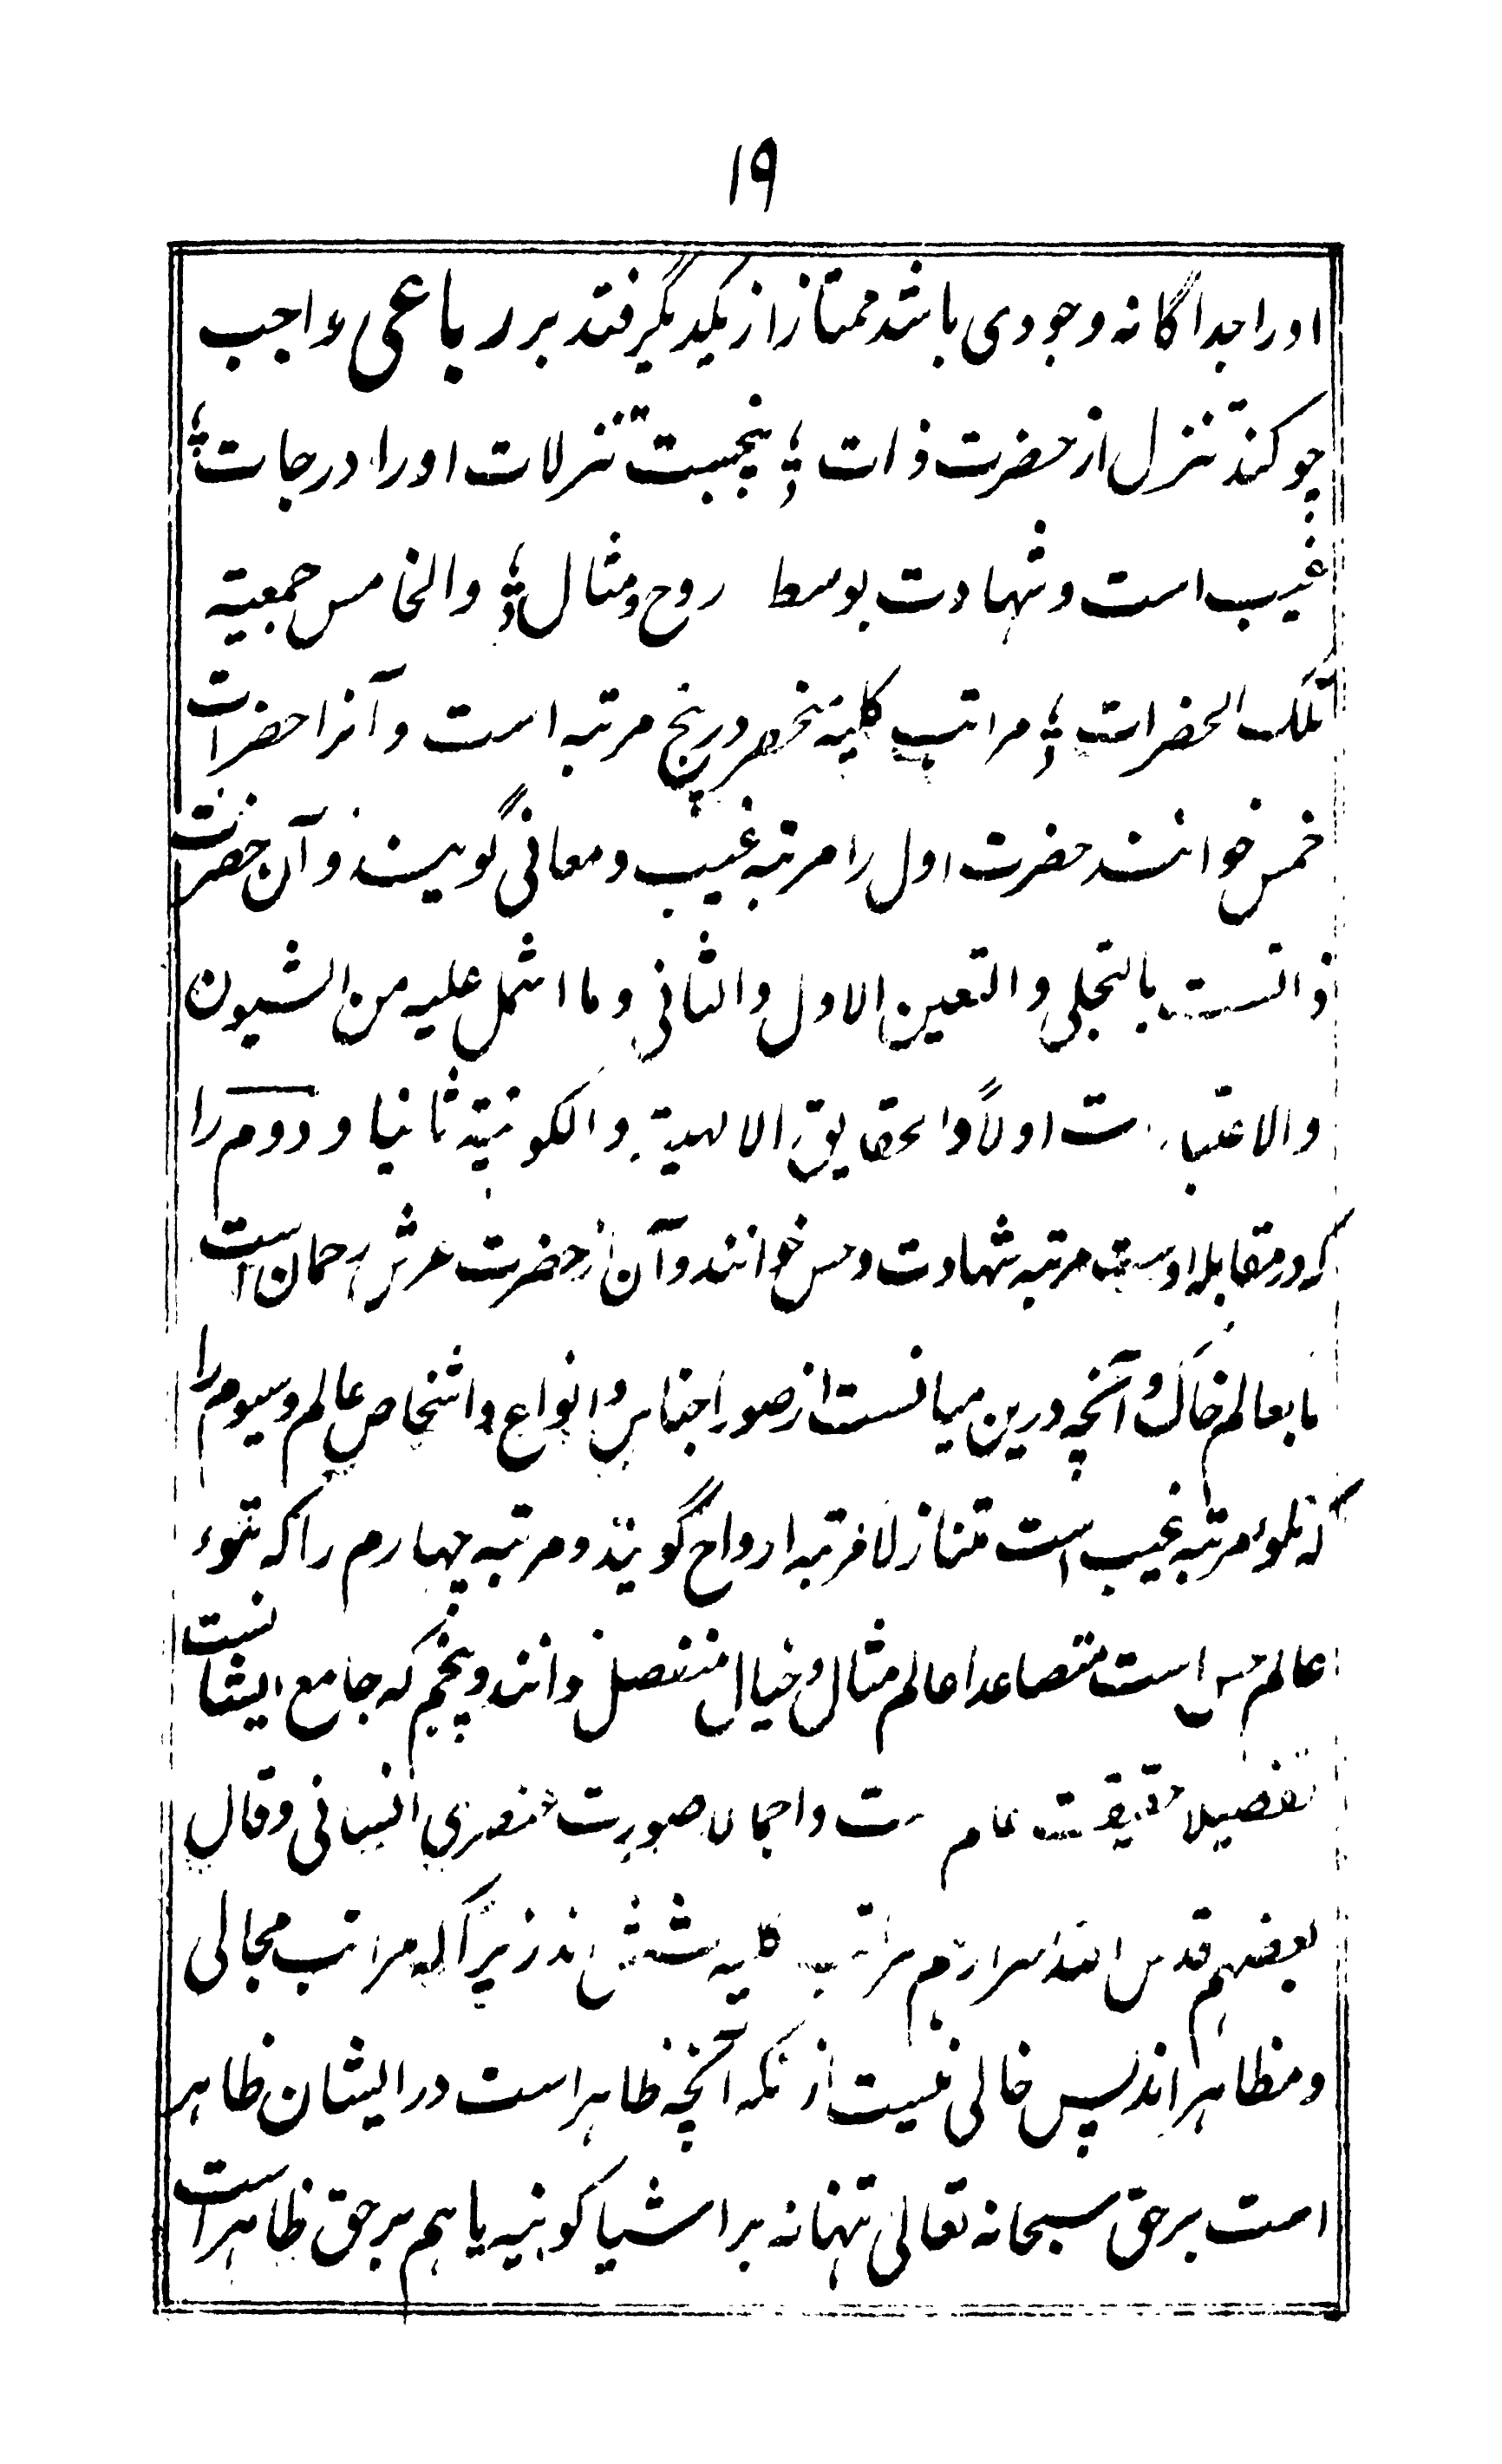 ۱۹
اورا جداگانه وجودی باشد ممتاز از یکدیگر فتدبر رباعی واجب
چو کند تنزل از حضرت ذات ؛ پنجست تنزلات اورا درجات ؛
غیب است و شهادت بوسط روح و مثال ؛ والخامس جمعیة
تلک الحضرات ؛ مراتب کلیة منحصر در پنج مرتبه است و آنرا حضرات
خمس خوانند حضرت اول را مرتبه غیب و معانی گویند و آن حضرت
ذاتست بالتجلی والتعین الاول والثانی وما اشتمل علیه من الشیون
والاعتبارات اولاً والحقایق الالهیة والکونیة ثانیا و دوم را
که در مقابله اوست مرتبه شهادت و حس خوانند و آن از حضرت عرش رحمان است
تا بعالم خاک و آنچه درین میانست از صور اجناس و انواع و اشخاص عالم وسیوم را
که تلو مرتبه غیب است متنازلا مرتبه ارواح گویند و مرتبه چهارم را که تلو
عالم حس است متصاعدا عالم مثال و خیال منفصل دانند و پنجم که جامع ایشانست
تفصیلا حقیقت عالم است و اجمالا صورت عنصری انسانی و قال
بعضهم قدس الله اسرارهم مراتب کلیه شش اند زیرا که مراتب مجالی
و مظاهر اند پس خالی نیست از نکه آنچه ظاهر است در ایشان ظاهر
است بر حق سبحانه تعالی تنها نه بر اشیا کونیه یا هم بر حق ظاهر است